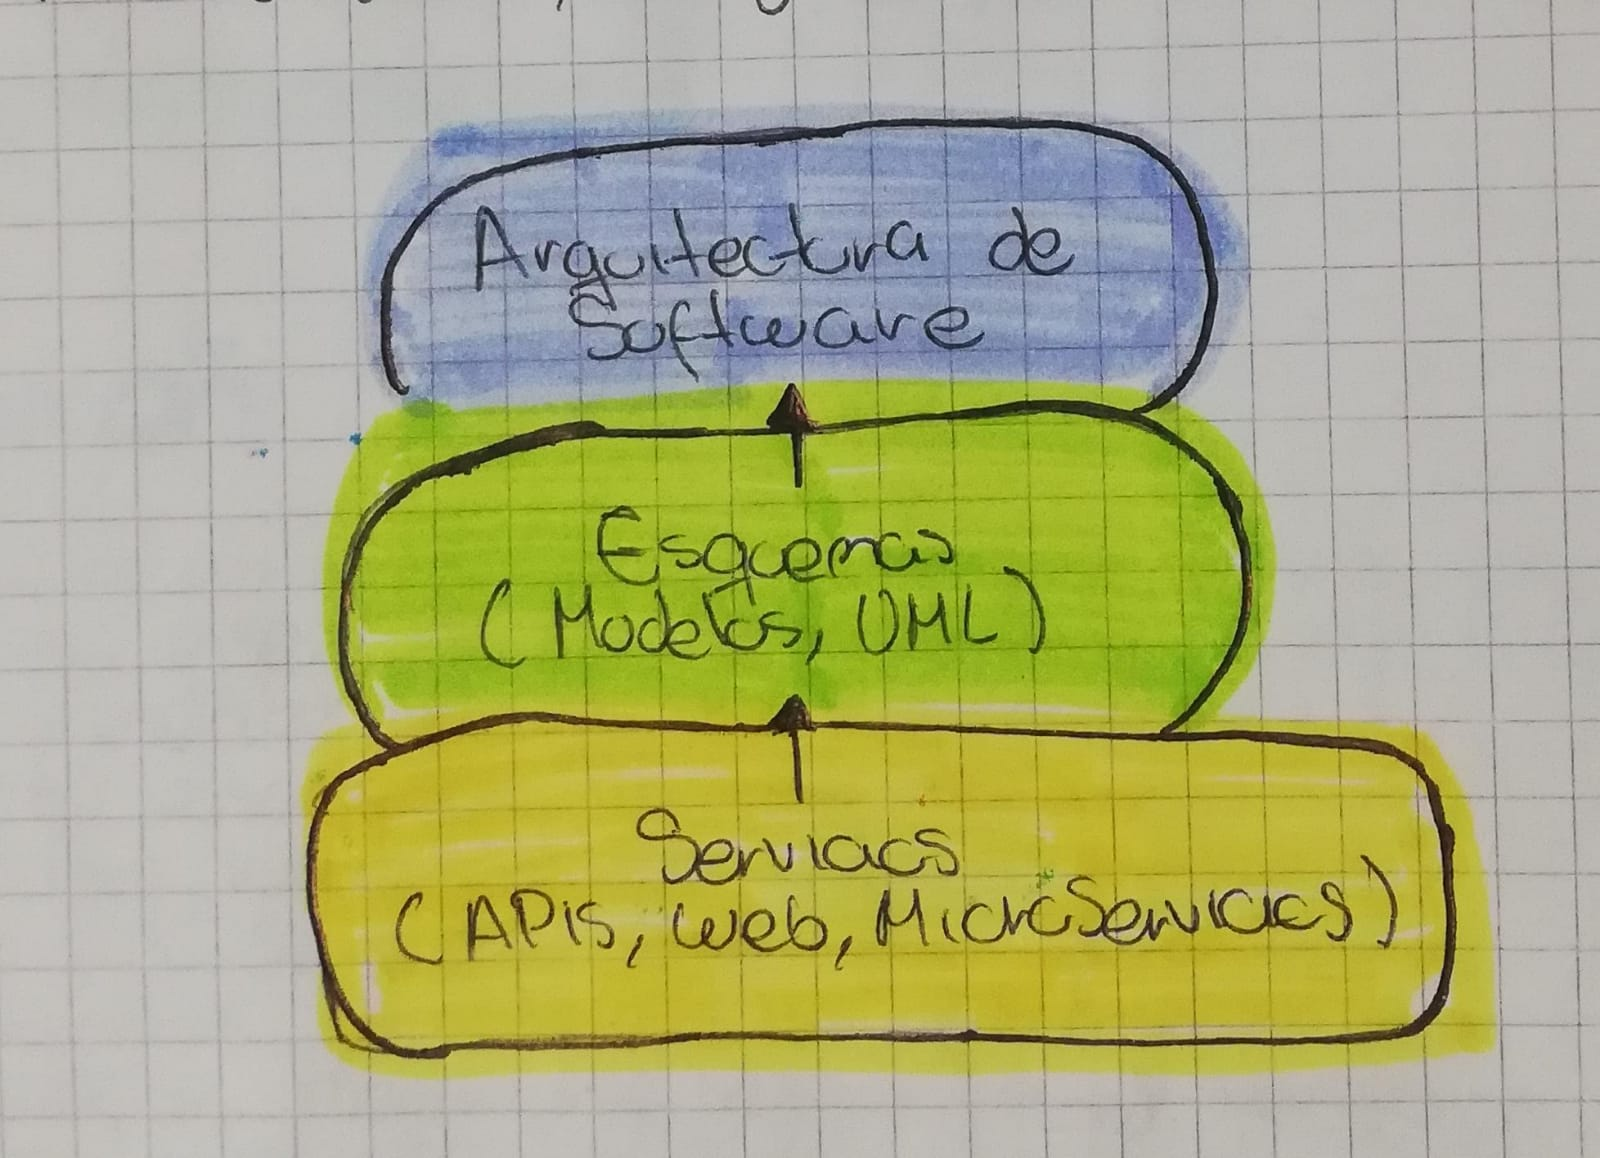 Arquitectura de
Software
Esquemas
(Modelos, UML)
Servicios
(APIs, web, MicroServicios)